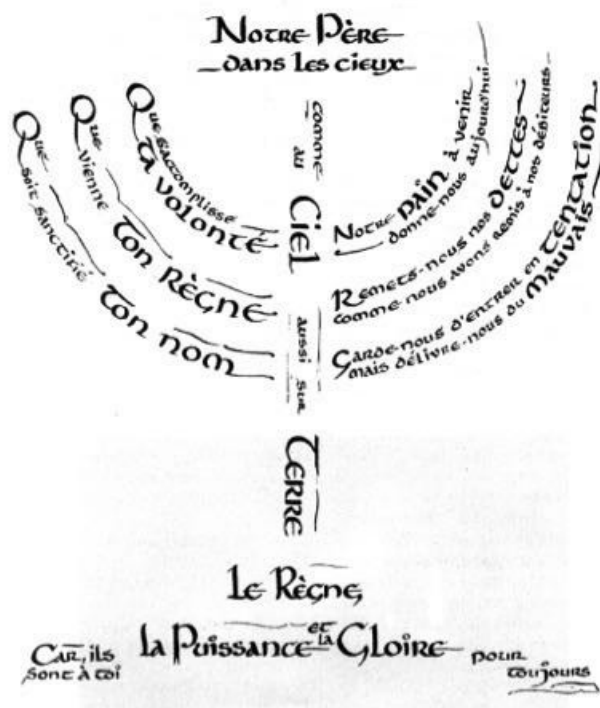 Notre Père
dans les cieux
Que
soit sanctifié
ton nom
Que
vienne
ton Règne
Que s'accomplisse
ta volonté
comme
au
Ciel
aussi sur
Terre
Notre pain à venir
donne-nous aujourd'hui
Remets-nous nos dettes
comme nous avons remis à nos débiteurs
Garde-nous d'entrer en tentation
mais délivre-nous du Mauvais
Le Règne,
la Puissance et la Gloire
Car, ils
sont à toi
pour
toujours